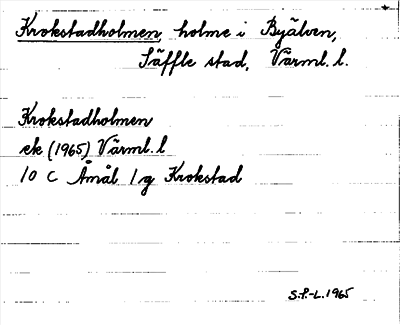 Krokstadholmen, holme i Byälven,
Säffle stad, Värml. l.
Krokstadholmen
ek (1965) Värml. l
10 C Åmål 1 g Krokstad
S.P.-L. 1965